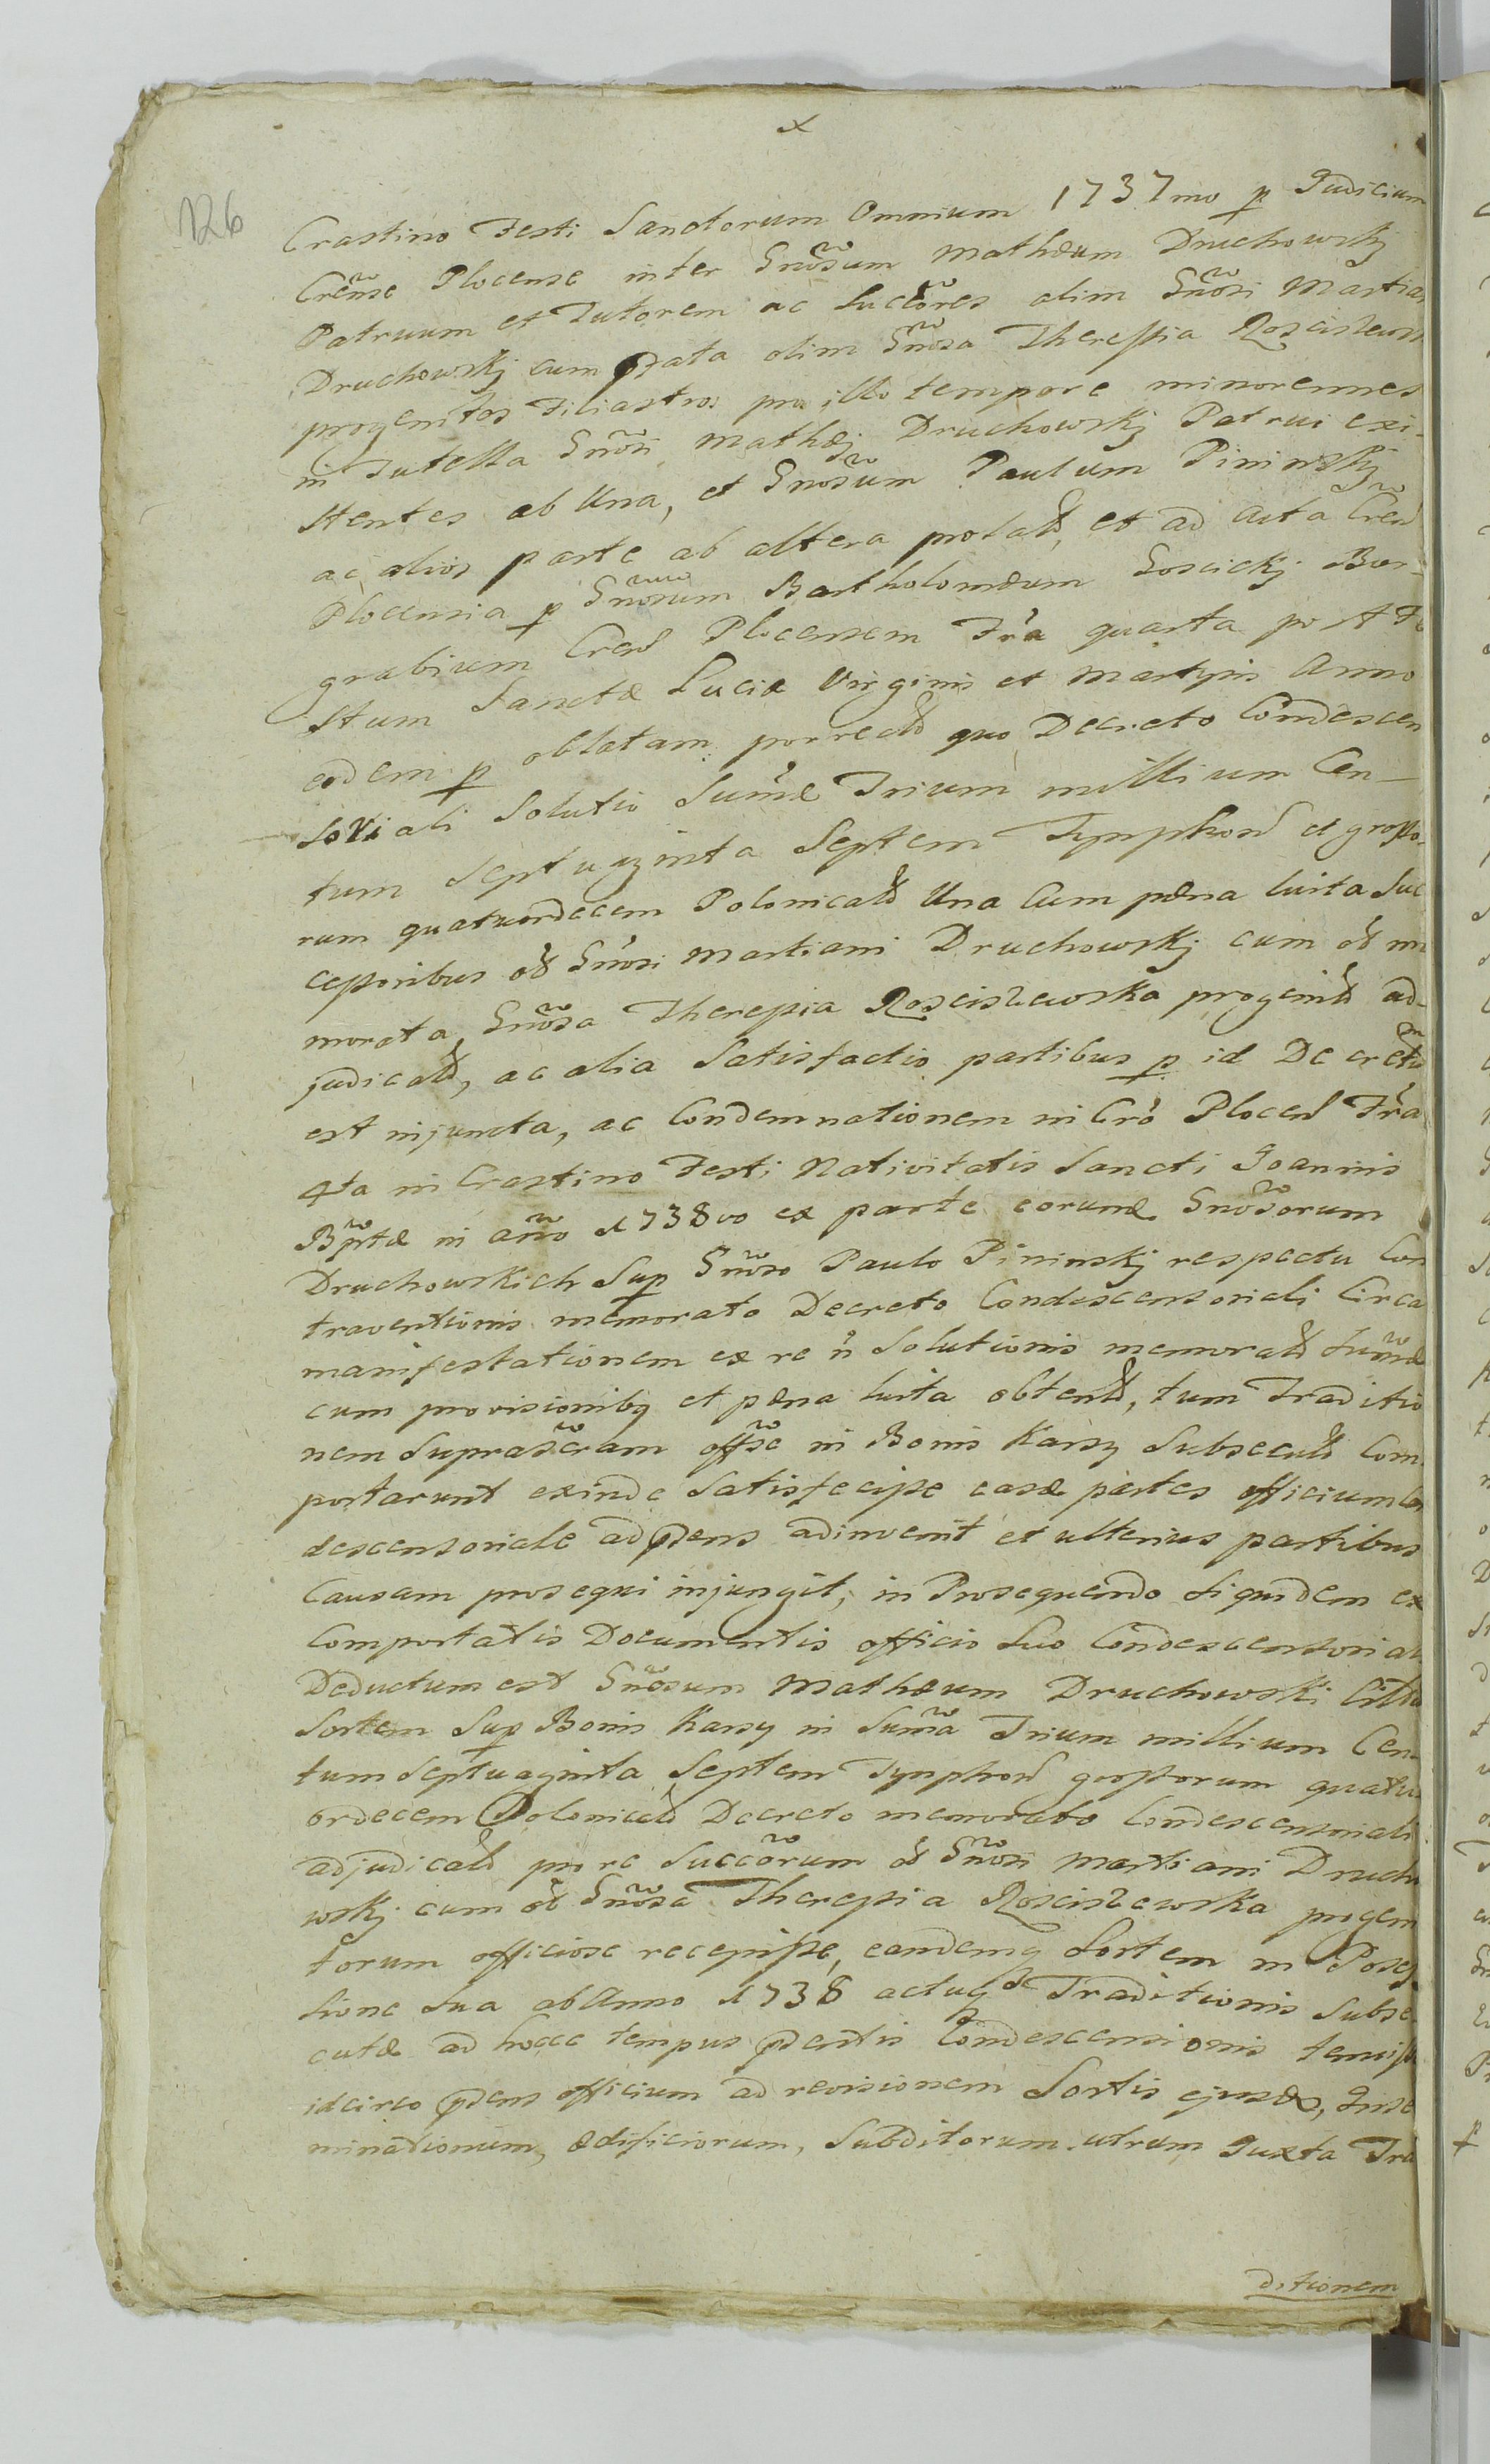 x
126
Crastino Festi Sanctorum Omnium 1737mo p Judicium
Crẽnse Plocense inter Gnõsum Mathæum Druchowskj
Patruum et Tutorem ac Succõres olim Gnõsi Martia
Druchowskj cum pfata olim Gnõsa Theressia Rosciszewsk
progenitos Filiastros pro illo tempore minorennes
in Tutella Gnõsi Mathæj Druchowskj Patrui exi-
stentes ab Una, et Gnosũm Paulum Pininskj
ac alios parte ab altera prolatꝭ, et ad Acta Crẽn
Plocensia p Gnõsum Bartholomæum Goscickj Bur-
grabium Cren Plocensem Fr̃a quarta post Fe
stum Sanctæ Luciæ Virginis et Martyris Anno
eodem p oblatam porrectꝭ quo Decreto Condescen
soriali Solutio Sum̃æ Trium millium Cen-
tum septuaginta Septem Tynphon̄ et grosso-
rum quatuordecem Polonicalꝭ Una Cum pæna luita Suc
cessoribus oꝭ Gnõsi Martiani Druchowskj cum oꝭ me
morata Gnõsa Theressia Rosciszewska progenitꝭ ad-
judicatꝭ, ac alia Satisfactio partibus p id Decretũ
est injuncta, ac Condemnationem in Crõ Plocen̄ Fr̃a
4ta in Crastino Festi Nativitatis Sancti Joannis
Bp̃tæ in año 1738vo ex parte eorund Gnõsorum
Druchowskich Sup Gnõso Paulo Pininskj respectu Con
traventionis memorato Decreto Condescensoriali Circa
manifestationem ex re ñ Solutionis memoratꝭ Sum̃æ
cum provisionibq et pæna luita obtentꝭ, tum Traditio
nem Suprasc̃ram offse in Bonis Karsy Subsecutꝭ Com
portarunt exinde Satisfecisse easd partes officium Con
descensoriale ad pñens adinvenit et ulterius partibus
Causam prosequi injungit, in Prosequendo siquidem ex
Comportatis Documentis officio Suo Condescensoriali
Deductum est Gnõsum Mathæum Druchowski
Sortem Sup Bonis Karsy in Sum̃a Trium millium Cen-
tum septuaginta Septem Tynphon̄ grossorum quatu
ordecem Polonicalꝭ Decreto memorato Condescensoriali
adjudicatꝭ pro re Succõrum oꝭ Gnõsi Martiani Drucho
wskj cum oꝭ Gnõsa Theressia Rosciszewska progeni
torum officiose recepisse, eandemq Sortem in Posses
sione Sua ab Anno 1738 actuq Traditionis Subse
cutæ ad hocce tempus pñentis Condescensionis tenuisse
idcirco pñens officium ad revisionem Sortis ejusd, Inse
minationum, ædificiorum, Subditorum utrum Juxta Tra
ditionem